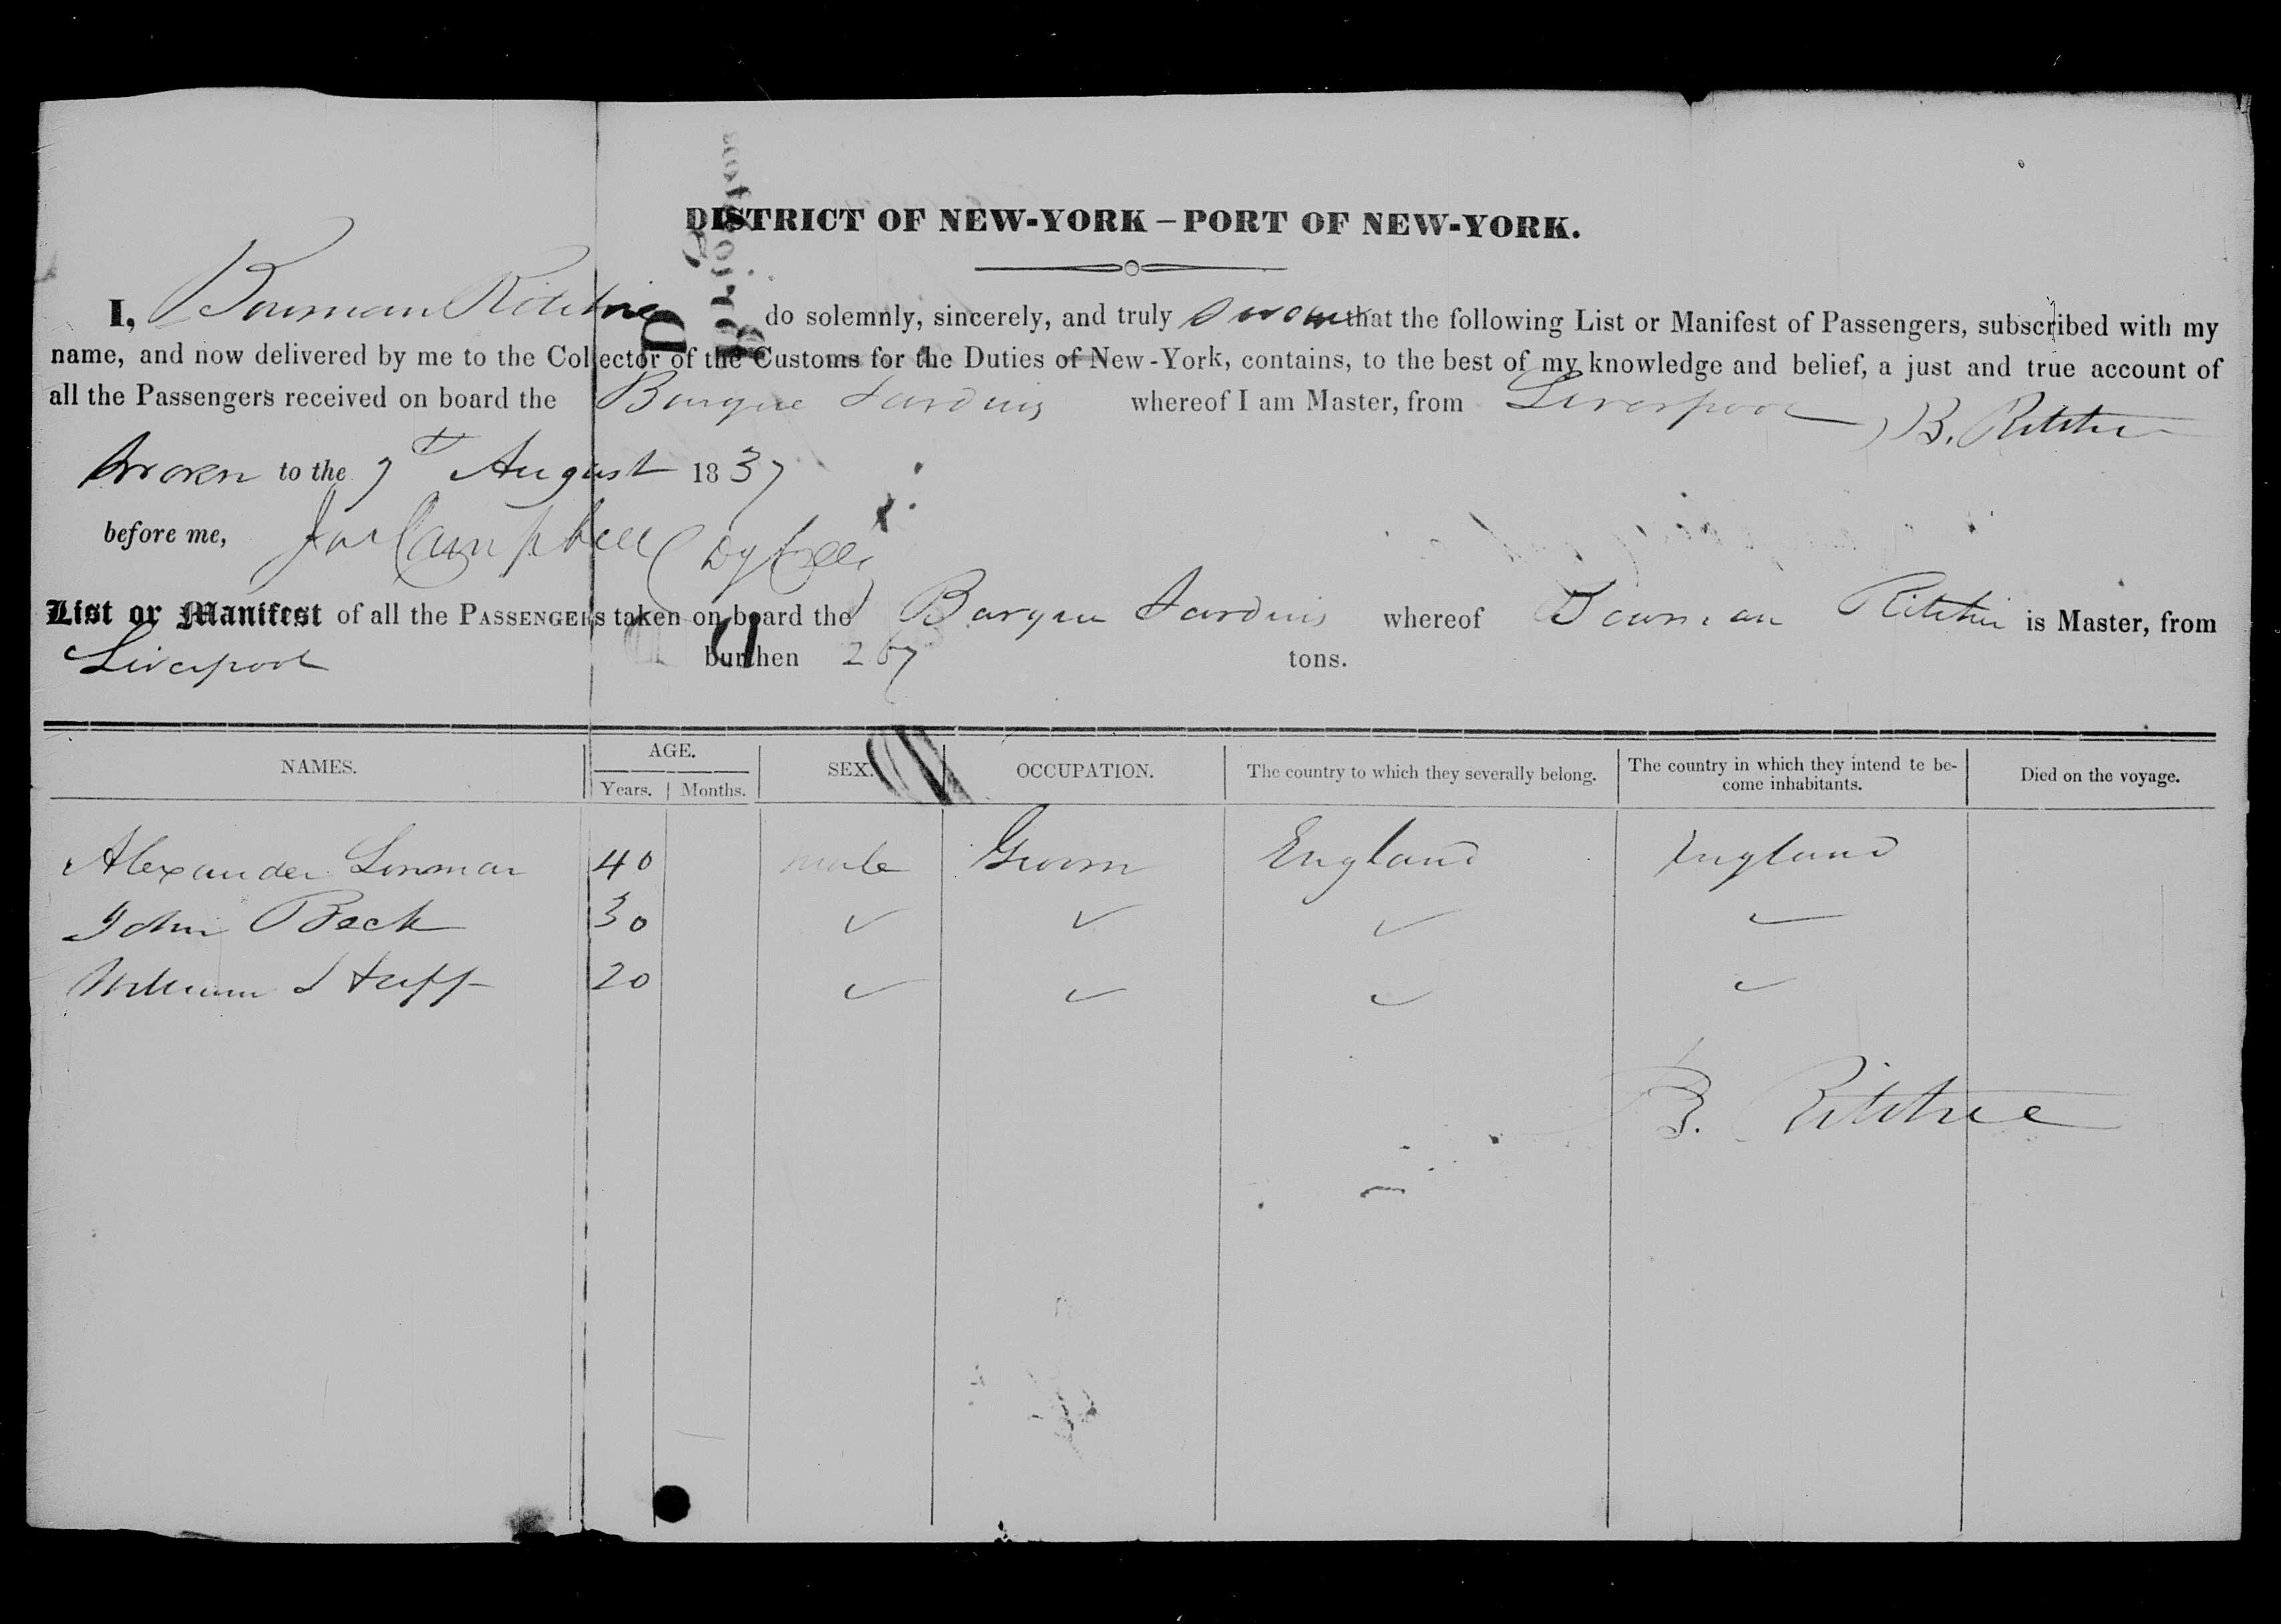 DISTRICT OF NEW-YORK – PORT OF NEW-YORK.
I, Bowman Ritchie do solemnly, sincerely, and truly swear that the following List or Manifest of Passengers, subscribed with my
name, and now delivered by me to the Collector of the Customs for the Duties of New-York, contains, to the best of my knowledge and belief, a just and true account of
all the Passengers received on board the Barque Sardius whereof I am Master, from Liverpool
B. Ritchie
Sworn to the 7th August 1837
before me, Jas Campbell
List or Manifest of all the PASSENGERS taken on board the Barque Sardius whereof Bowman Ritchie is Master, from
Liverpool burthen 267 tons.
NAMES. AGE. SEX. OCCUPATION. The country to which they severally belong. The country in which they intend te be-
come inhabitants. Died on the voyage.
Years. Months.
Alexander 40 male Groom England England
John Beck 30 ✓ ✓ ✓ ✓
William 20 ✓ ✓ ✓ ✓
B. Ritchie